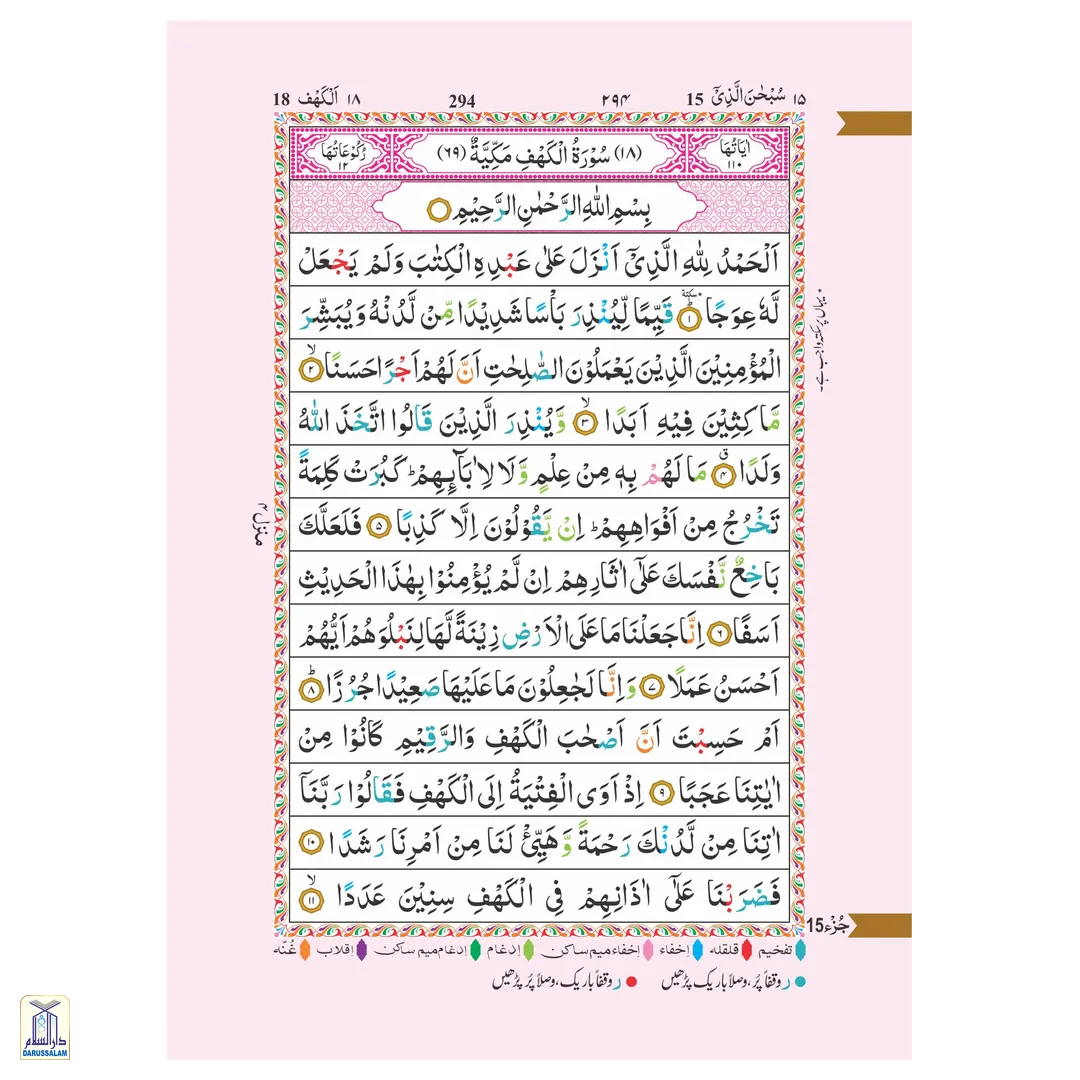 ١٥ سُبْحٰنَ الَّذِیْۤ 15 ٢٩٤ 294 ١٨ اَلْكَهْف 18
اٰیَاتُهَا ١١٠ (١٨) سُوْرَةُ الْكَهْفِ مَكِّیَّةٌ (٦٩) رُكُوْعَاتُهَا ١٢
بِسْمِ اللهِ الرَّحْمٰنِ الرَّحِیْمِ
اَلْحَمْدُ لِلّٰهِ الَّذِیْۤ اَنْزَلَ عَلٰی عَبْدِهِ الْكِتٰبَ وَلَمْ یَجْعَلْ
لَّهٗ عِوَجًا سكتة ١ قَیِّمًا لِّیُنْذِرَ بَاْسًا شَدِیْدًا مِّنْ لَّدُنْهُ وَیُبَشِّرَ
الْمُؤْمِنِیْنَ الَّذِیْنَ یَعْمَلُوْنَ الصّٰلِحٰتِ اَنَّ لَهُمْ اَجْرًا حَسَنًا ٢
مَّاكِثِیْنَ فِیْهِ اَبَدًا ٣ وَّیُنْذِرَ الَّذِیْنَ قَالُوا اتَّخَذَ اللهُ
وَلَدًا ٤ مَا لَهُمْ بِهٖ مِنْ عِلْمٍ وَّلَا لِاٰبَآئِهِمْ ؕ كَبُرَتْ كَلِمَةً
تَخْرُجُ مِنْ اَفْوَاهِهِمْ ؕ اِنْ یَّقُوْلُوْنَ اِلَّا كَذِبًا ٥ فَلَعَلَّكَ
بَاخِعٌ نَّفْسَكَ عَلٰۤی اٰثَارِهِمْ اِنْ لَّمْ یُؤْمِنُوْا بِهٰذَا الْحَدِیْثِ
اَسَفًا ٦ اِنَّا جَعَلْنَا مَا عَلَی الْاَرْضِ زِیْنَةً لَّهَا لِنَبْلُوَهُمْ اَیُّهُمْ
اَحْسَنُ عَمَلًا ٧ وَاِنَّا لَجٰعِلُوْنَ مَا عَلَیْهَا صَعِیْدًا جُرُزًا ٨
اَمْ حَسِبْتَ اَنَّ اَصْحٰبَ الْكَهْفِ وَالرَّقِیْمِ كَانُوْا مِنْ
اٰیٰتِنَا عَجَبًا ٩ اِذْ اَوَی الْفِتْیَةُ اِلَی الْكَهْفِ فَقَالُوْا رَبَّنَاۤ
اٰتِنَا مِنْ لَّدُنْكَ رَحْمَةً وَّهَیِّئْ لَنَا مِنْ اَمْرِنَا رَشَدًا ١٠
فَضَرَبْنَا عَلٰۤی اٰذَانِهِمْ فِی الْكَهْفِ سِنِیْنَ عَدَدًا ١١
٭ یہاں پر سکتہ واجب ہے۔
منزل ٤
جُزْء 15
تفخیم قلقله إخفاء إخفاء میم ساکن إدغام إدغام میم ساکن إقلاب غُنَّه
ر وقفاً پُر، وصلاً باریک پڑھیں ر وقفاً باریک، وصلاً پُر پڑھیں
دار السلام
DARUSSALAM